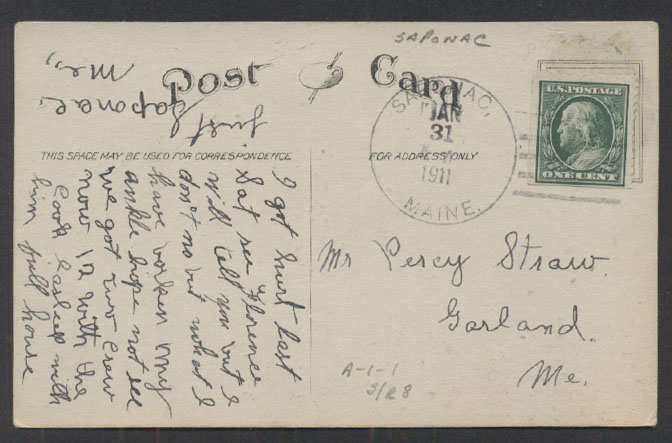 SAPONAC
Post Card
Saponac,
Me.,
THIS SPACE MAY BE USED FOR CORRESPONDENCE
FOR ADDRESS ONLY
SAPONAC,
JAN
31
1911
MAINE.
U.S. POSTAGE
ONE CENT
I got hurt last
Sat see Florence
will tell you but I
don't no but what I
have broken my
ankle hope not
we got two crew
now 12 with the
Cook
him full house
Mr Percy Straw.
Garland.
Me.
A-1-1
S/R8